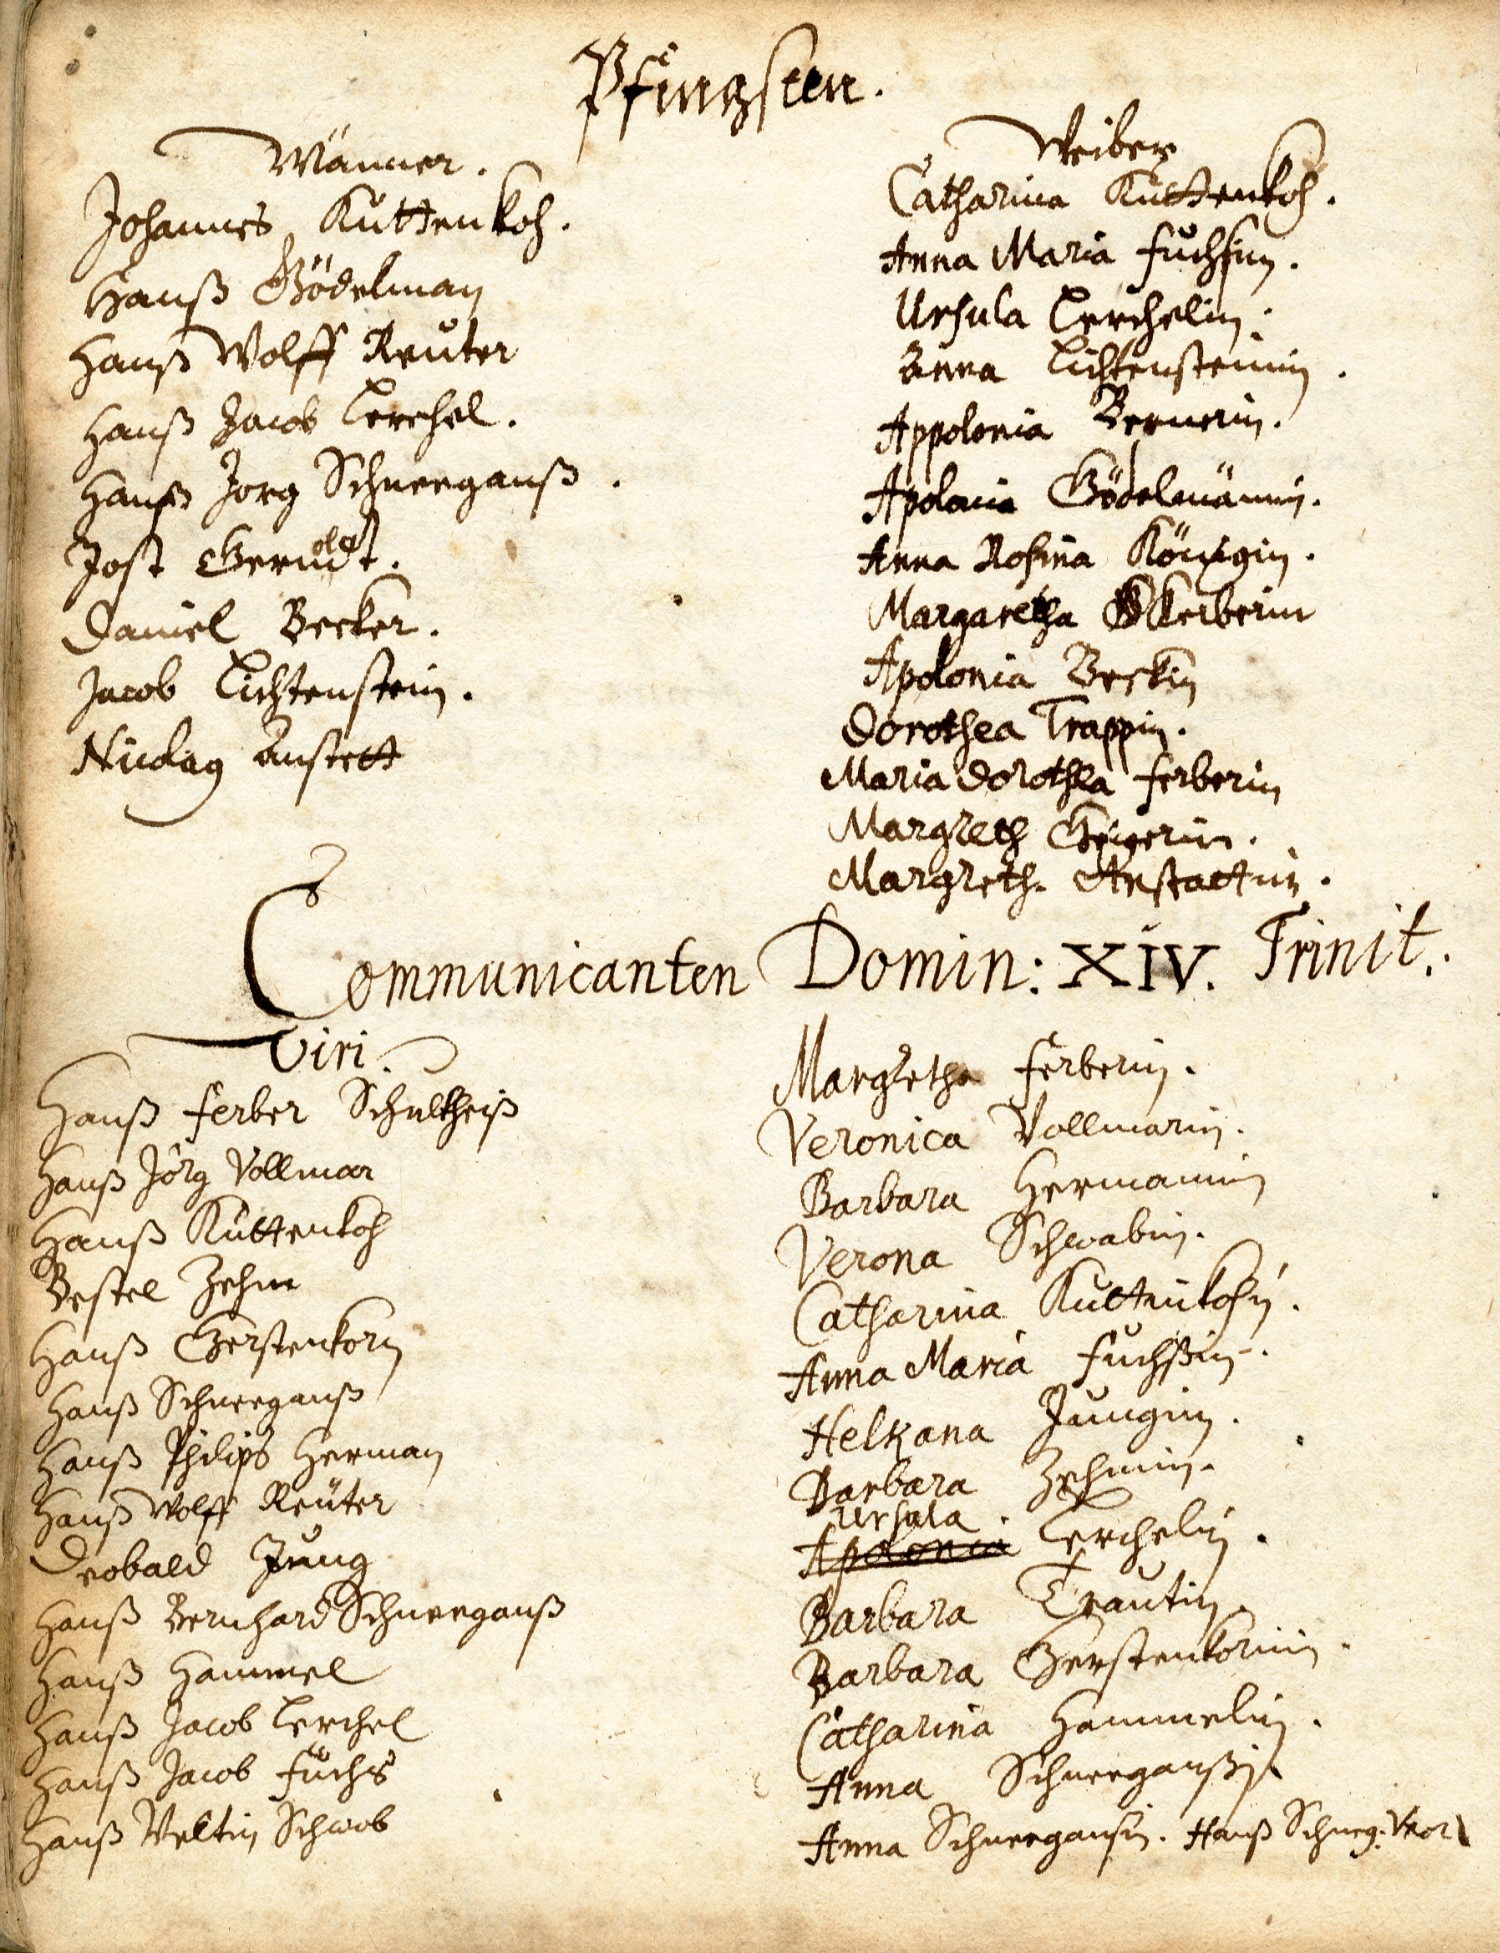 Pfingsten.
Männer.
Johannes Kuttenkoh.
Hanß Gödelman
Hanß Wolff Reuter
Hanß Jacob Lerchel.
Hanß Jorg Schneeganß.
Jost Gerndt.
olt
Daniel Becker.
Jacob Lichtenstein.
Anstett
Weiber
Catharina Kuttenkoh.
Anna Maria Fuchsin.
Ursula Lerchelin.
Anna Lichtensteinin.
Appolonia Bernerin.
Apolonia Gödelmännin.
Anna Rosina Königin.
Margaretha Kkerberin
Apolonia Beckin
Dorothea Trappin.
Maria Dorothea Ferberin
Margreth Geigerin.
Margreth. Anstattin.
Communicanten Domin: XIV. Trinit.
Viri.
Hanß Ferber Schultheiß
Hanß Jörg Vollmar
Hanß Kuttenkoh
Bestel Zehm
Hanß Gerstenkorn
Hanß Schneeganß
Hanß Philips Herman
Hanß Wolff Reuter
Deobald Jung
Hanß Bernhard Schneeganß
Hanß Hammel
Hanß Jacob Lerchel
Hanß Jacob Fuchs
Hanß Veltin Schwob
Margretha Ferberin.
Veronica Vollmarin.
Barbara Hermannin
Verona Schwabin.
Catharina Kuttenkohin.
Anna Maria Fuchßin.
Helkana Jungin.
Barbara Zehmin.
Ursula
Apolonia Lerchelin.
Barbara Trautin.
Barbara Gerstenkornin.
Catharina Hammelin.
Anna Schneeganßin
Anna Schneegansin. Hanß Schneg.